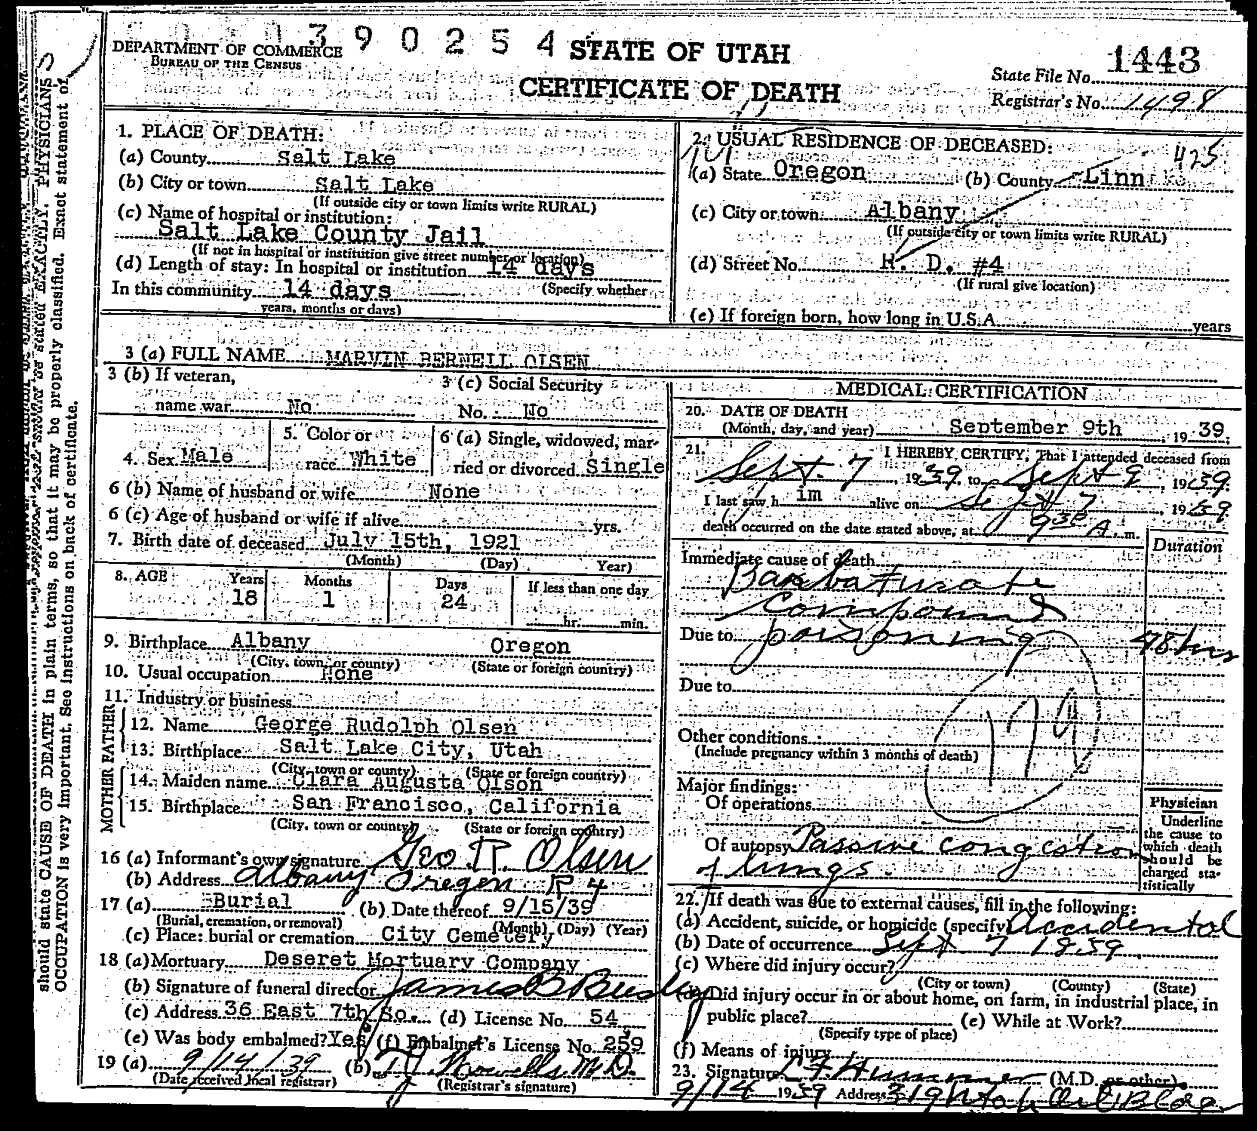 390254
DEPARTMENT OF COMMERCE
BUREAU OF THE CENSUS
STATE OF UTAH
CERTIFICATE OF DEATH
State File No. 1443
Registrar's No. 1498
should state CAUSE OF DEATH in plain terms, so that it may be properly classified. Exact statement of
OCCUPATION is very important. See instructions on back of certificate.
1. PLACE OF DEATH:
(a) County Salt Lake
(b) City or town Salt Lake
(If outside city or town limits write RURAL)
(c) Name of hospital or institution:
Salt Lake County Jail
(If not in hospital or institution give street number or location)
(d) Length of stay: In hospital or institution 14 days
In this community 14 days (Specify whether
years, months or days)
2. USUAL RESIDENCE OF DECEASED: 425
(a) State Oregon (b) County Linn
(c) City or town Albany
(If outside city or town limits write RURAL)
(d) Street No. R. D. #4
(If rural give location)
(e) If foreign born, how long in U.S.A. years
3 (a) FULL NAME MARVIN BERNELL OLSEN
3 (b) If veteran,
name war No
3 (c) Social Security
No. No
4. Sex Male
5. Color or
race White
6 (a) Single, widowed, mar-
ried or divorced Single
6 (b) Name of husband or wife None
6 (c) Age of husband or wife if alive yrs.
7. Birth date of deceased July 15th, 1921
(Month) (Day) Year)
8. AGE Years Months Days If less than one day
18 1 24 hr. min.
9. Birthplace Albany Oregon
(City, town, or county) (State or foreign country)
10. Usual occupation None
11. Industry or business
FATHER
12. Name George Rudolph Olsen
13. Birthplace Salt Lake City, Utah
(City, town or county) (State or foreign country)
MOTHER
14. Maiden name Clara Augusta Olson
15. Birthplace San Francisco, California
(City, town or county) (State or foreign country)
16 (a) Informant's own signature Geo. R. Olsen
(b) Address Albany Oregon R 4
17 (a) Burial (b) Date thereof 9/15/39
(Burial, cremation, or removal) (Month) (Day) (Year)
(c) Place: burial or cremation City Cemetery
18 (a) Mortuary Deseret Mortuary Company
(b) Signature of funeral director James B Beesley
(c) Address 36 East 7th So. (d) License No. 54
(e) Was body embalmed? Yes (f) Embalmer's License No. 259
19 (a) 9/14/39 (b) M.D.
(Date received local registrar) (Registrar's signature)
MEDICAL CERTIFICATION
20. DATE OF DEATH
(Month, day, and year) September 9th, 1939.
21. I HEREBY CERTIFY, That I attended deceased from
Sept. 7, 1939, to Sept 9, 1939.
I last saw him alive on Sept 7, 1939
death occurred on the date stated above, at 930 A. m.
Immediate cause of death Duration
Barbaturate
Compound
Due to poisoning 48 hrs
Due to
Other conditions
(Include pregnancy within 3 months of death)
Major findings:
Of operations
Of autopsy Passive congestion
of lungs.
Physician
Underline
the cause to
which death
should be
charged sta-
tistically
22. If death was due to external causes, fill in the following:
(a) Accident, suicide, or homicide (specify) Accidental
(b) Date of occurrence Sept 7 1939
(c) Where did injury occur?
(City or town) (County) (State)
(d) Did injury occur in or about home, on farm, in industrial place, in
public place? (e) While at Work?
(Specify type of place)
(f) Means of injury
23. Signature (M.D. or other)
9/14 1939 Address 319 Bldg.